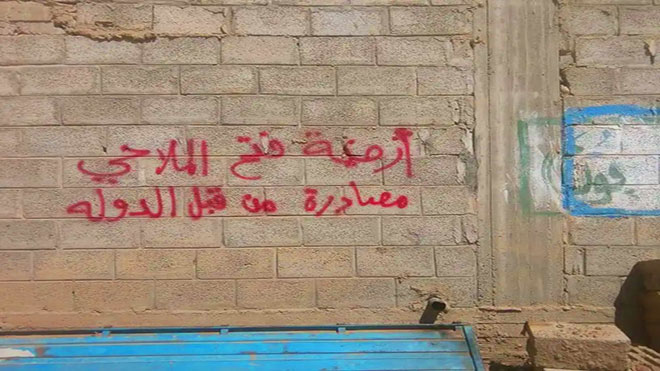 أرضية فتح الملاحي
مصادرة من قبل الدوله